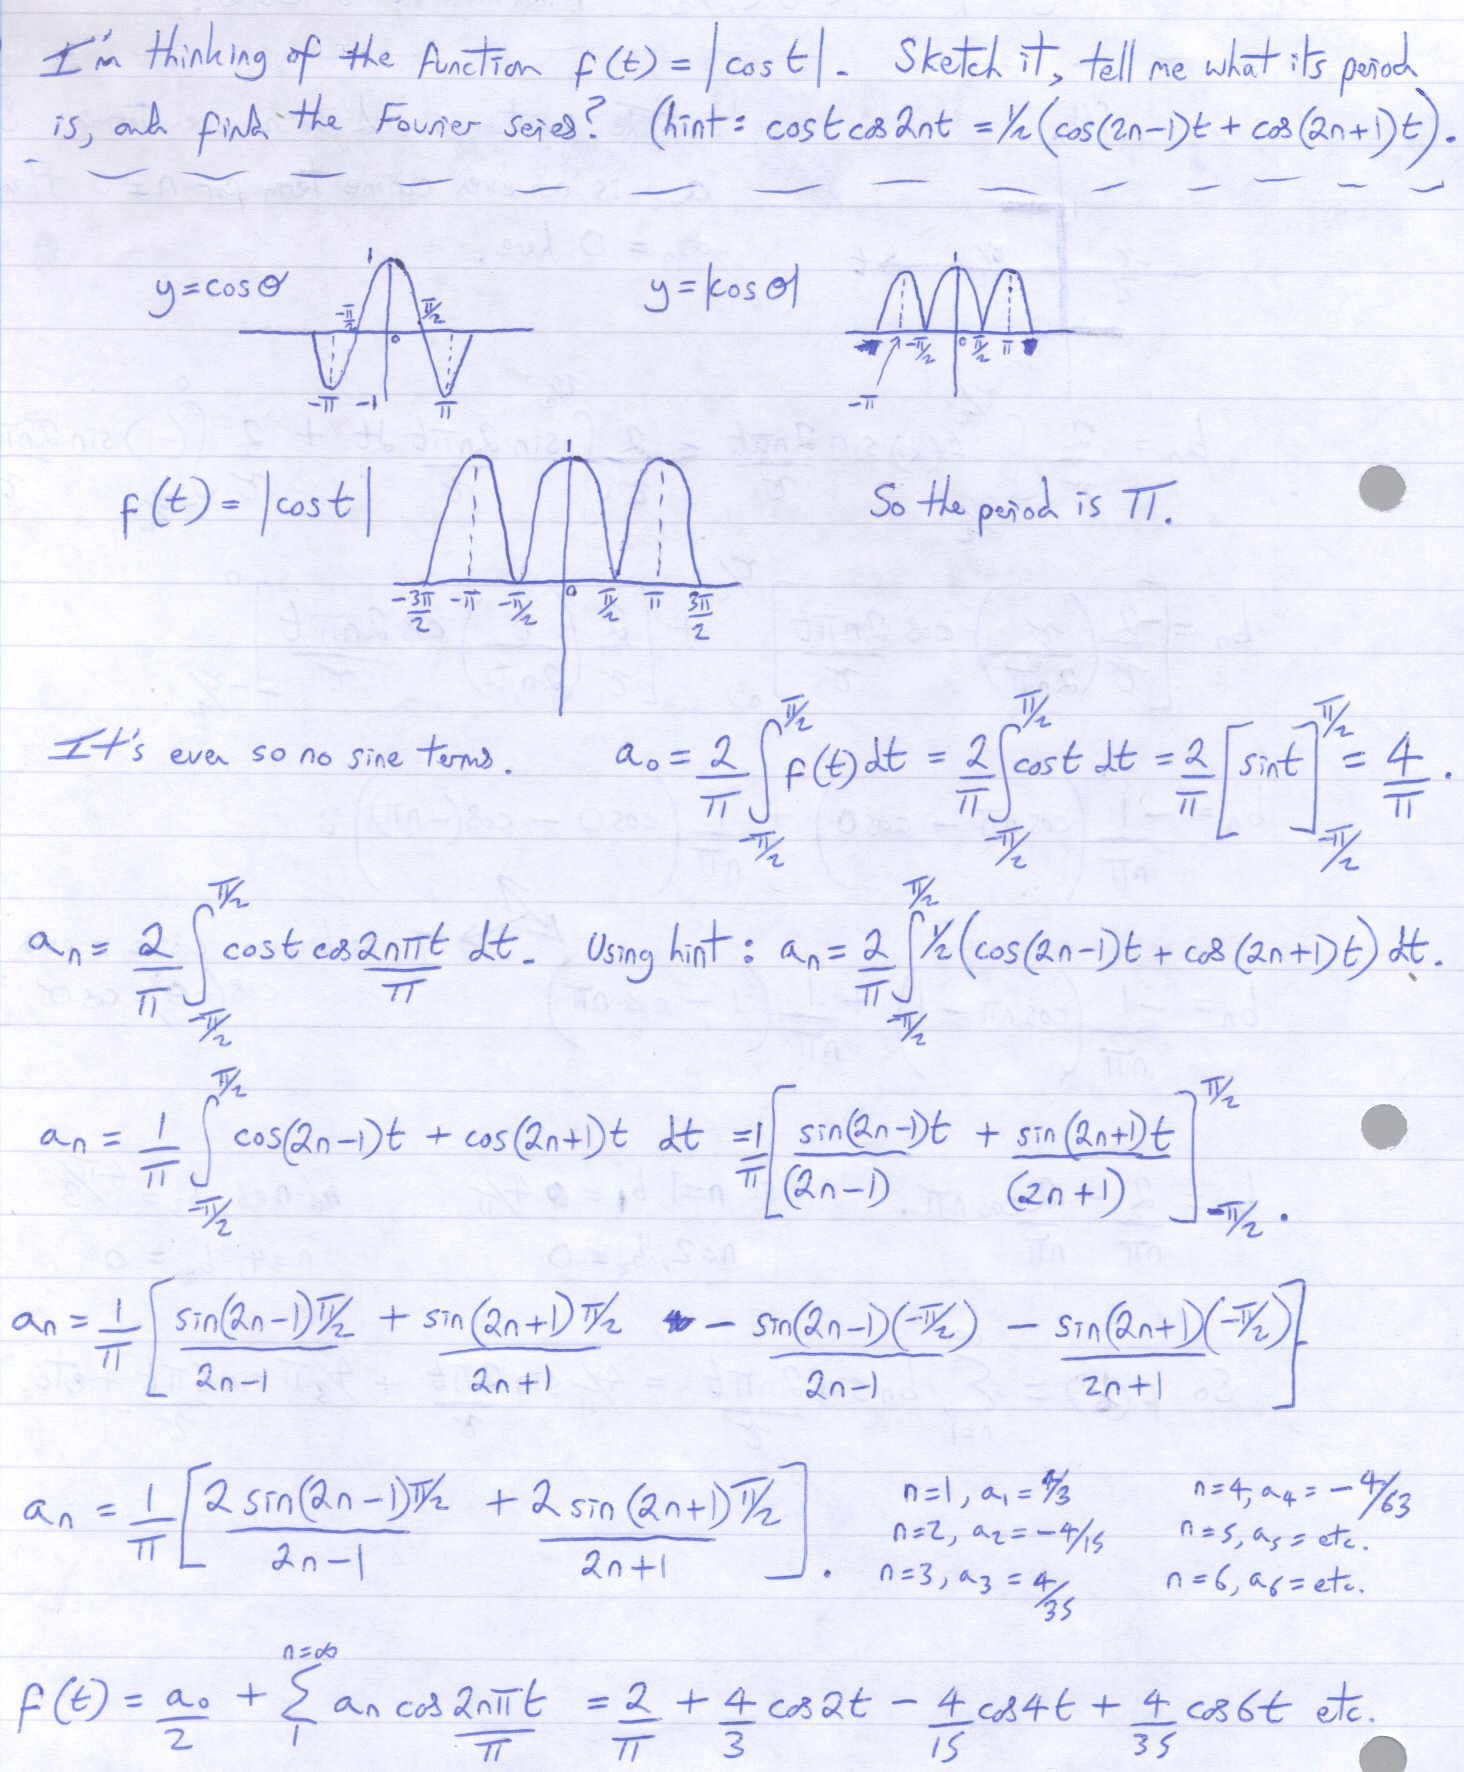 I'm thinking of the function f(t) = |cos t|. Sketch it, tell me what its period
is, and find the Fourier series? (hint: cos t cos 2nt = 1/2 (cos(2n-1)t + cos(2n+1)t).
y = cos θ 1 -π/2 π/2 0 -π -1 π
y = |cos θ| 1 -π/2 0 π/2 π -π
f(t) = |cos t| 1 -3π/2 -π -π/2 0 π/2 π 3π/2 So the period is π.
It's even so no sine terms. a₀ = 2/π ∫_{-π/2}^{π/2} f(t) dt = 2/π ∫_{-π/2}^{π/2} cos t dt = 2/π [sin t]_{-π/2}^{π/2} = 4/π.
aₙ = 2/π ∫_{-π/2}^{π/2} cos t cos 2nπt/π dt. Using hint: aₙ = 2/π ∫_{-π/2}^{π/2} 1/2 (cos(2n-1)t + cos(2n+1)t) dt.
aₙ = 1/π ∫_{-π/2}^{π/2} cos(2n-1)t + cos(2n+1)t dt = 1/π [sin(2n-1)t/(2n-1) + sin(2n+1)t/(2n+1)]_{-π/2}^{π/2}.
aₙ = 1/π [sin(2n-1)π/2 / 2n-1 + sin(2n+1)π/2 / 2n+1 - sin(2n-1)(-π/2) / 2n-1 - sin(2n+1)(-π/2) / 2n+1]
aₙ = 1/π [2 sin(2n-1)π/2 / 2n-1 + 2 sin(2n+1)π/2 / 2n+1].
n=1, a₁ = 4/3 n=4, a₄ = -4/63
n=2, a₂ = -4/15 n=5, a₅ = etc.
n=3, a₃ = 4/35 n=6, a₆ = etc.
f(t) = a₀/2 + Σ_{1}^{n=∞} aₙ cos 2nπt/π = 2/π + 4/3 cos 2t - 4/15 cos 4t + 4/35 cos 6t etc.